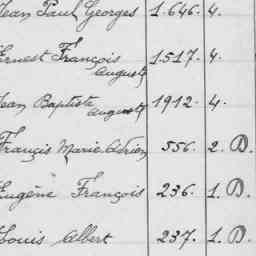 Jean Paul Georges 1.646. 4.
Ernest François Auguste 1517. 4.
Jean Baptiste Auguste 1912. 4.
François Marie Adrien 556. 2. D.
Eugène François 236. 1. D.
Louis Albert 237. 1. D.